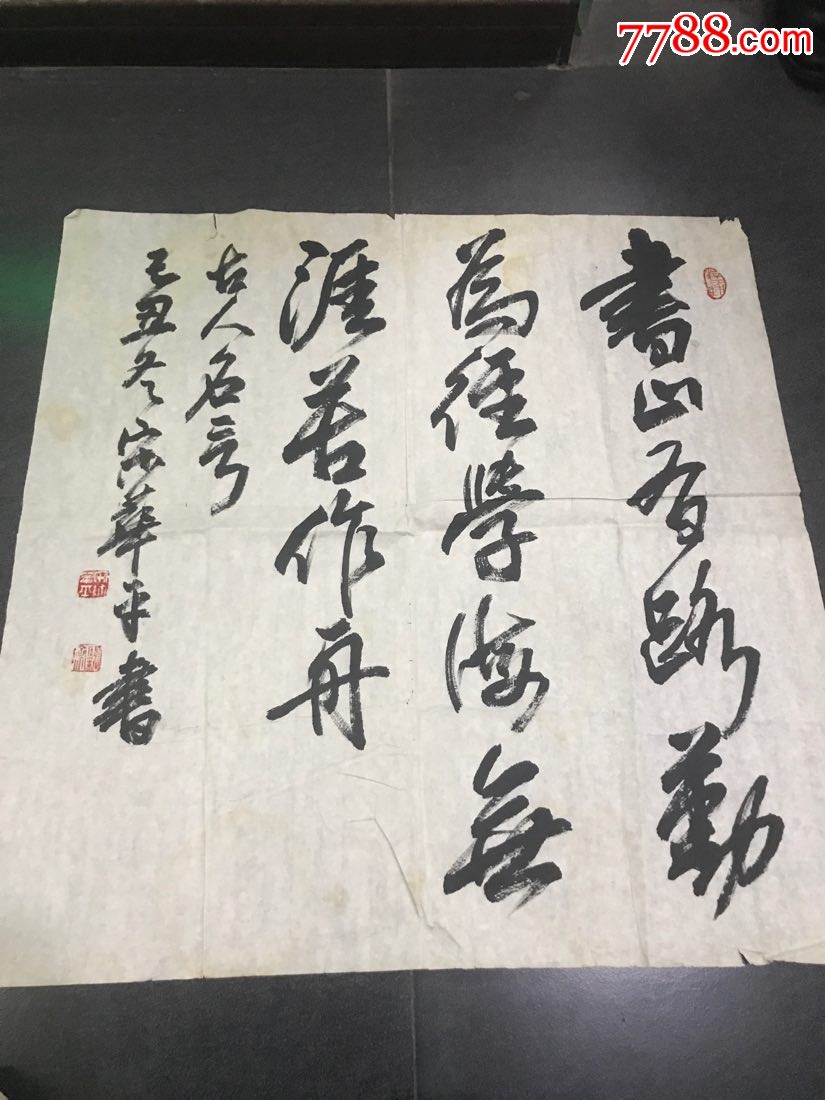 7788.com
書山有路勤
為徑學海無
涯苦作舟
古人名言
己丑冬宋華平書